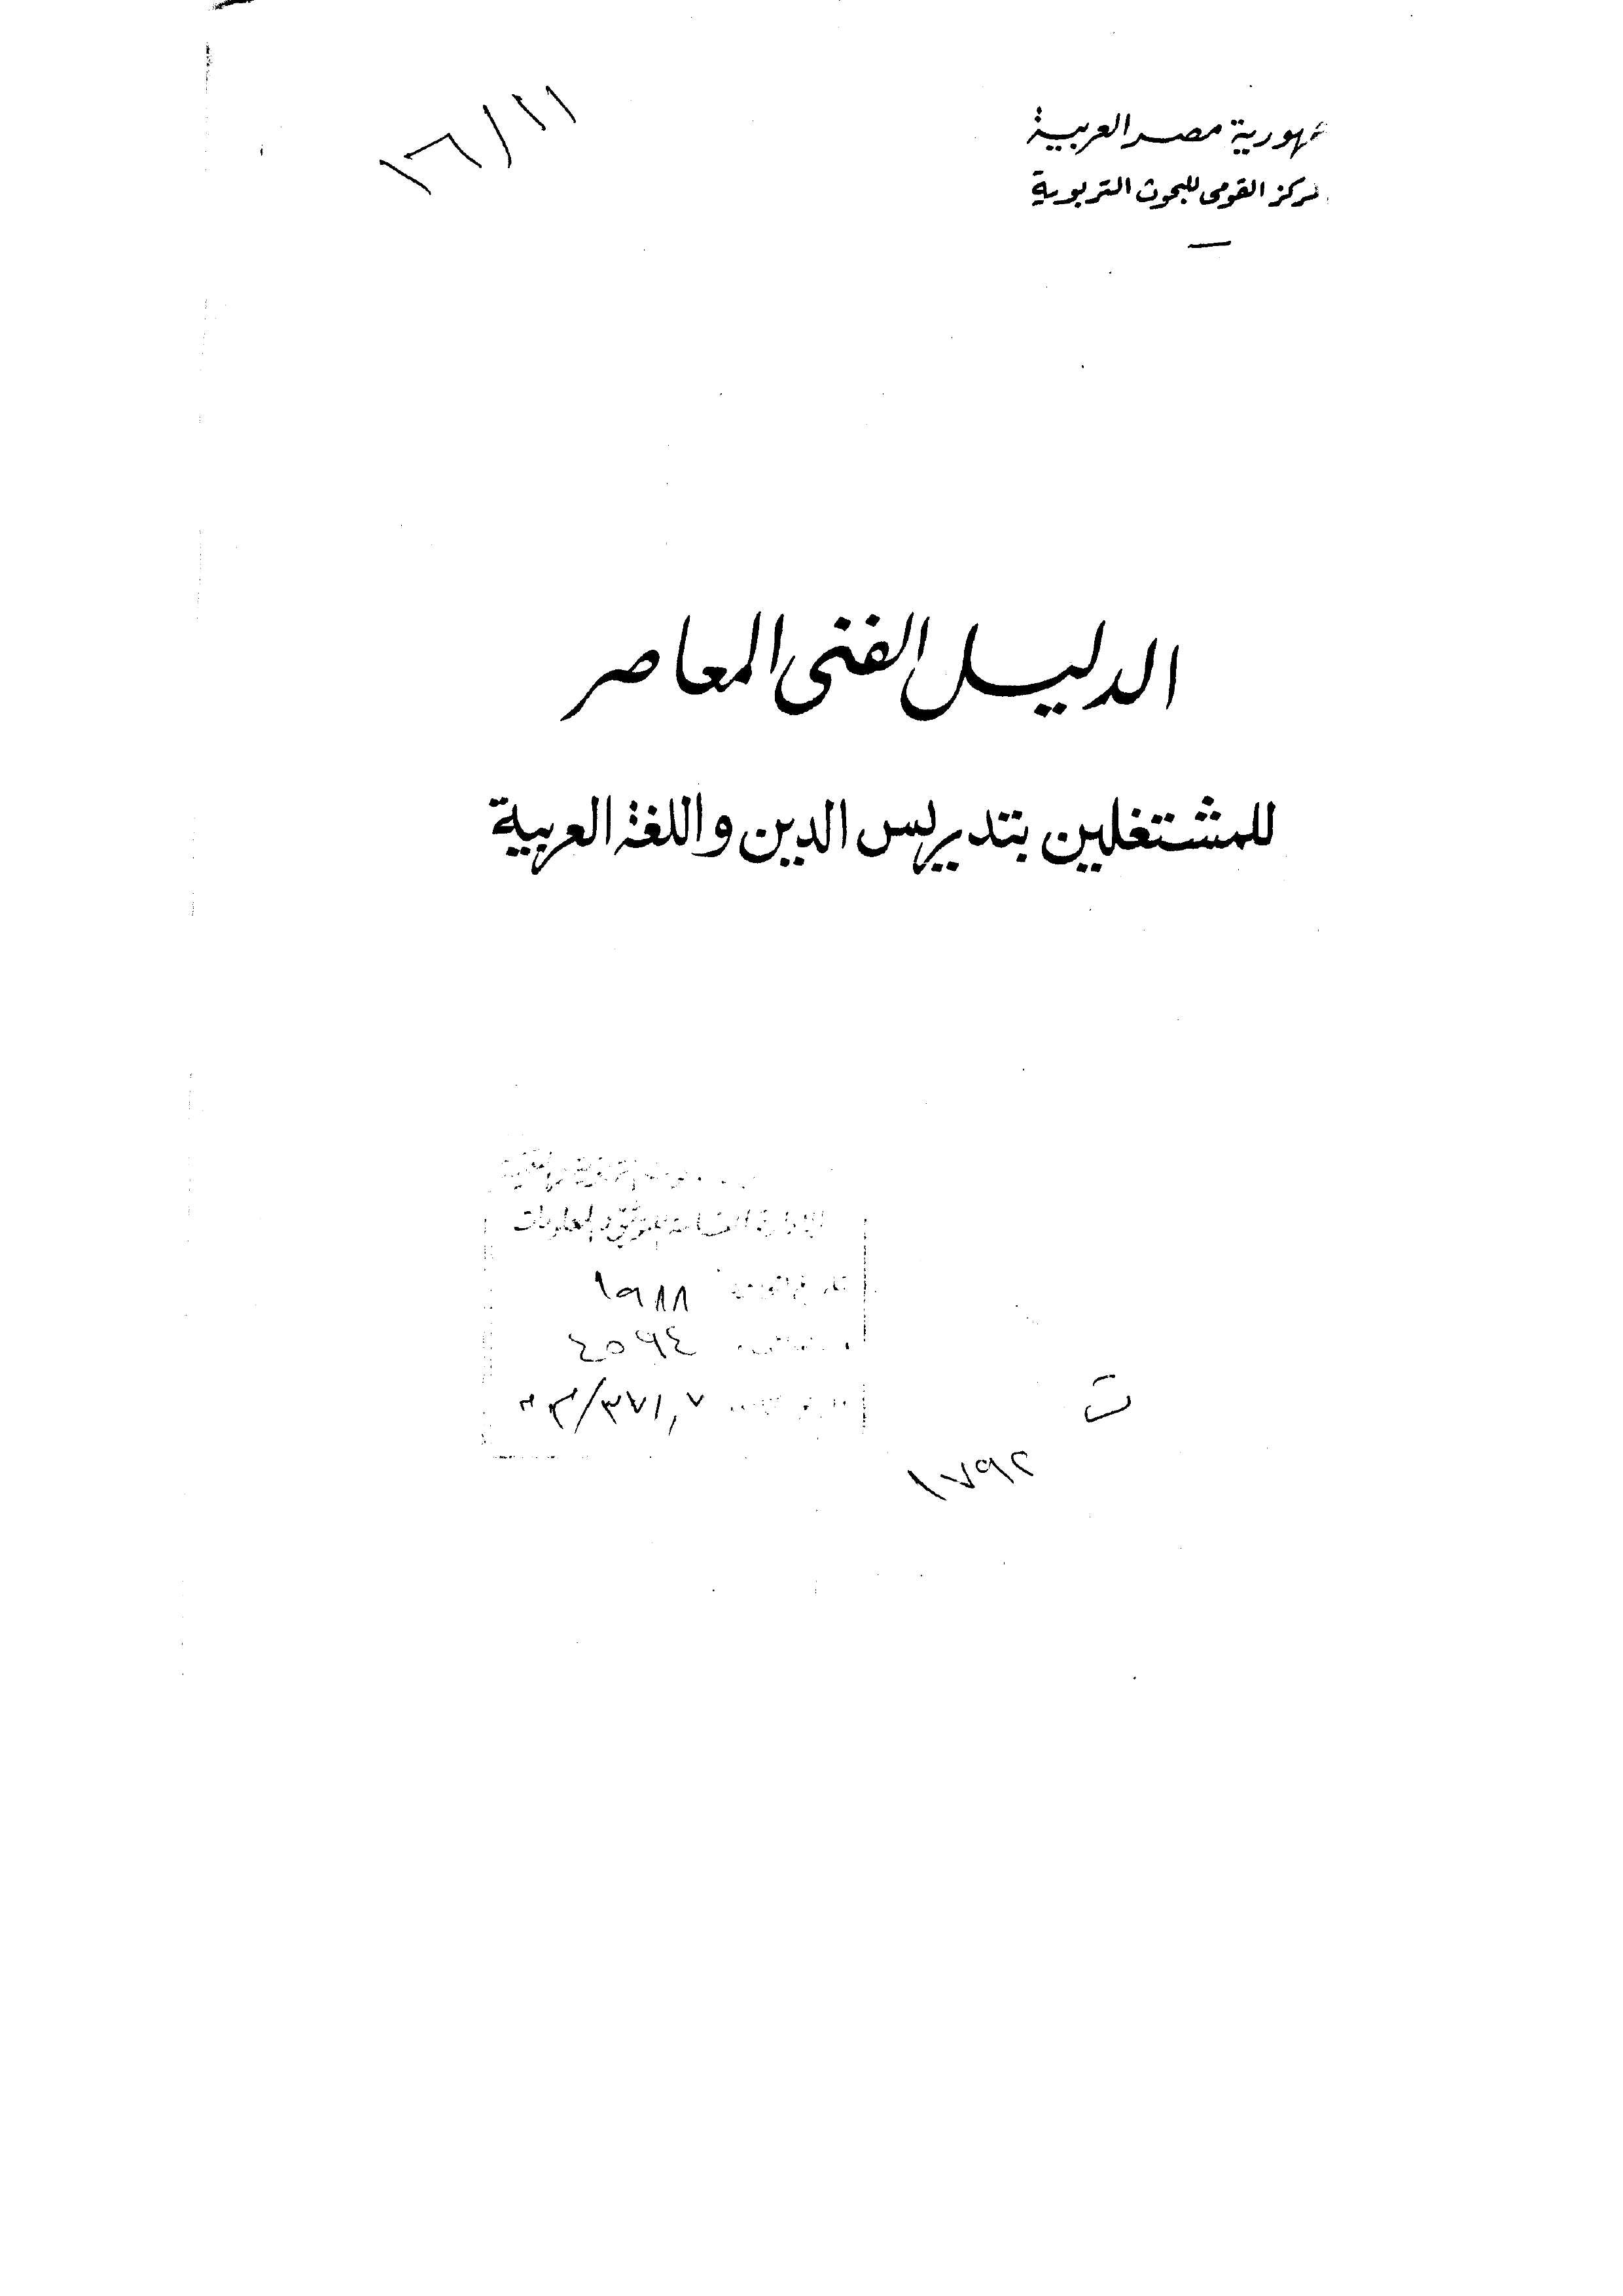 جمهورية مصر العربية
المركز القومى للبحوث التربوية
الدليل الفنى المعاصر
للمشتغلين بتدريس الدين واللغة العربية
١٩٨٨
٤٩٥٤
ت
١٧٩٢